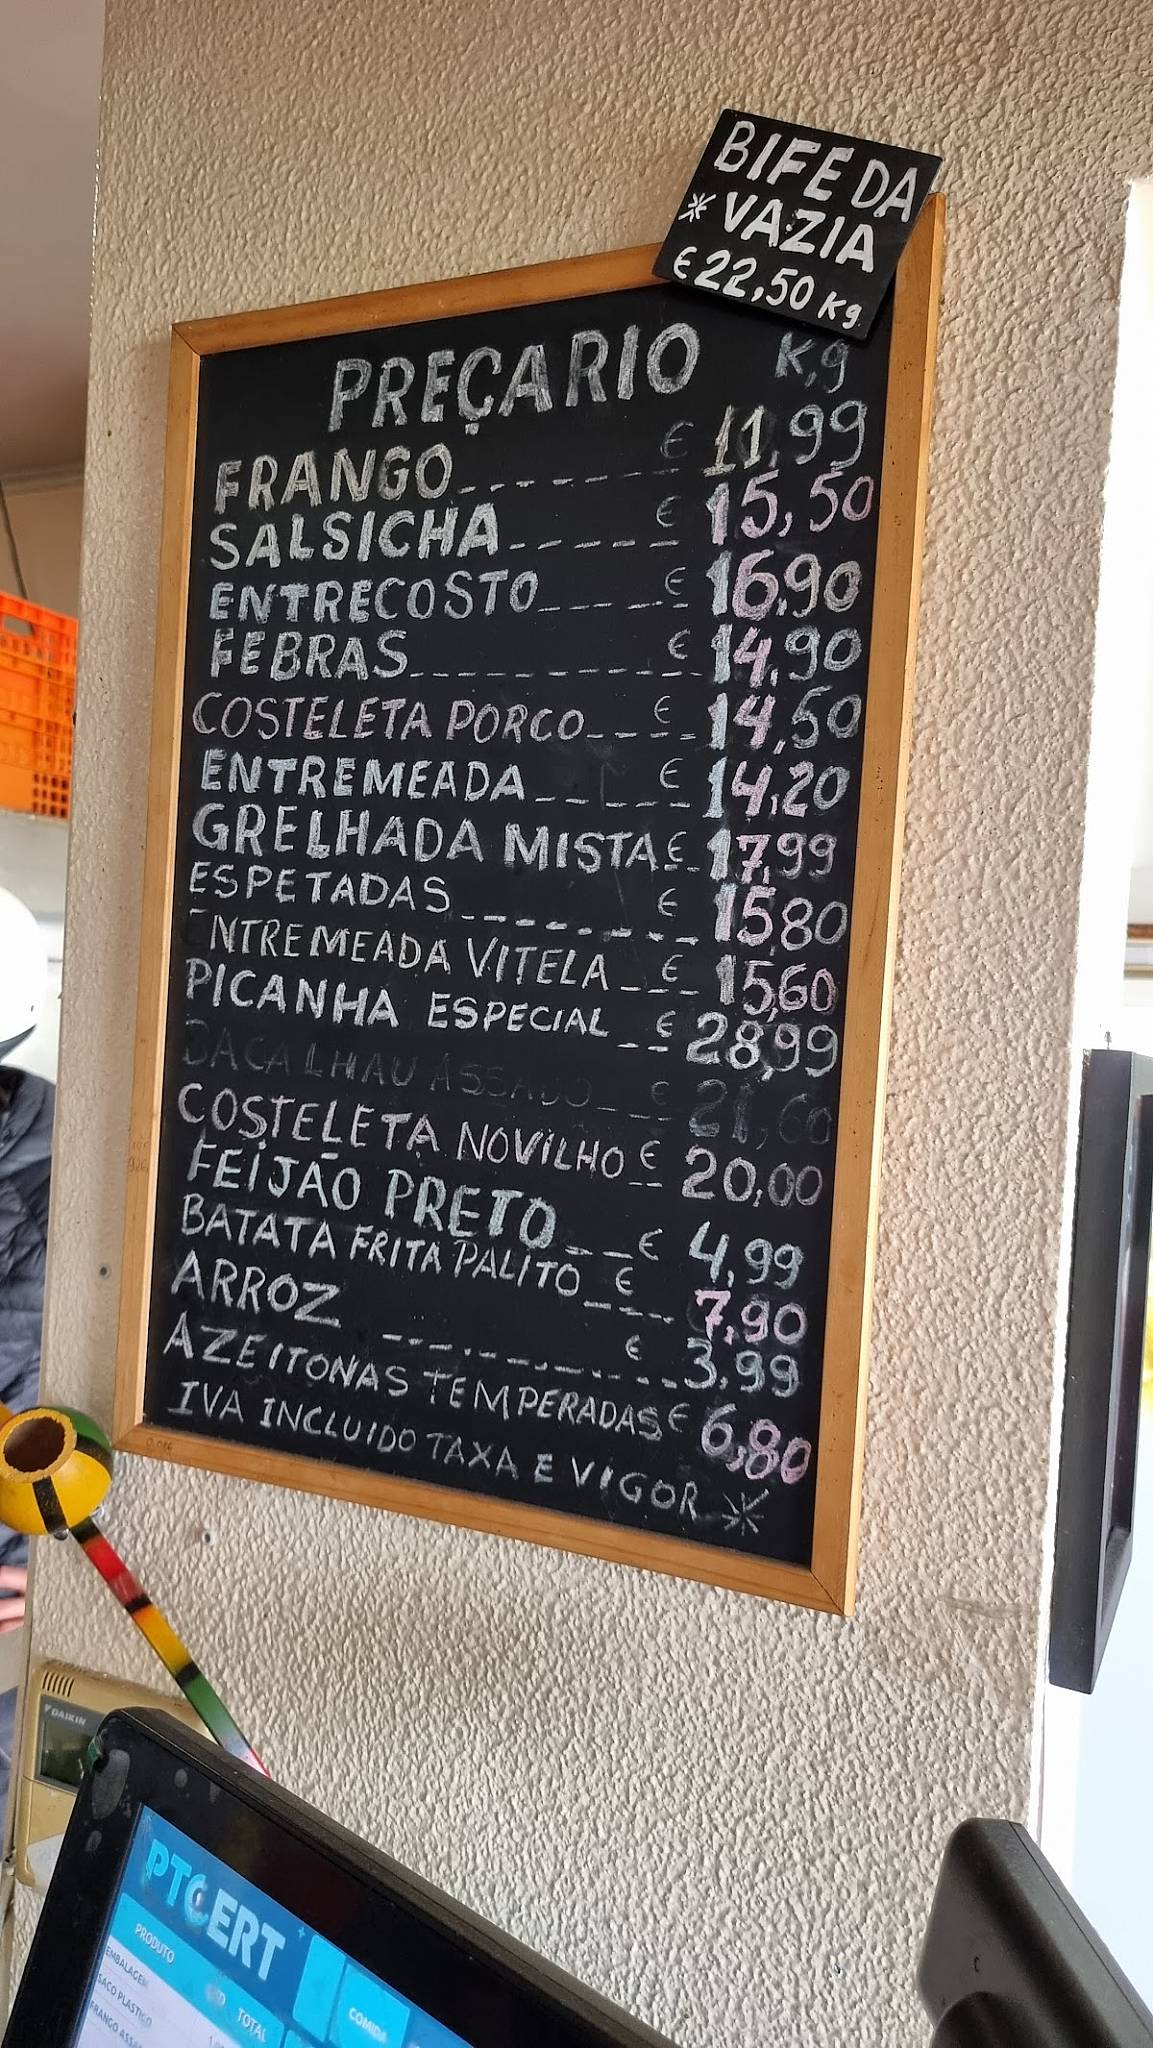 BIFE DA
* VAZIA
€ 22,50 Kg
PREÇARIO Kg
FRANGO € 11,99
SALSICHA € 15,50
ENTRECOSTO € 16,90
FEBRAS € 14,90
COSTELETA PORCO € 14,50
ENTREMEADA € 14,20
GRELHADA MISTA € 17,99
ESPETADAS € 15,80
ENTREMEADA VITELA € 15,60
PICANHA ESPECIAL € 28,99
BACALHAU ASSADO € 21,60
COSTELETA NOVILHO € 20,00
FEIJÃO PRETO € 4,99
BATATA FRITA PALITO € 7,90
ARROZ € 3,99
AZEITONAS TEMPERADAS € 6,80
IVA INCLUIDO TAXA E VIGOR *
DAIKIN
PTCERT
PRODUTO
TOTAL
COMIDA
EMBALAGEM
SACO PLASTICO
FRANGO